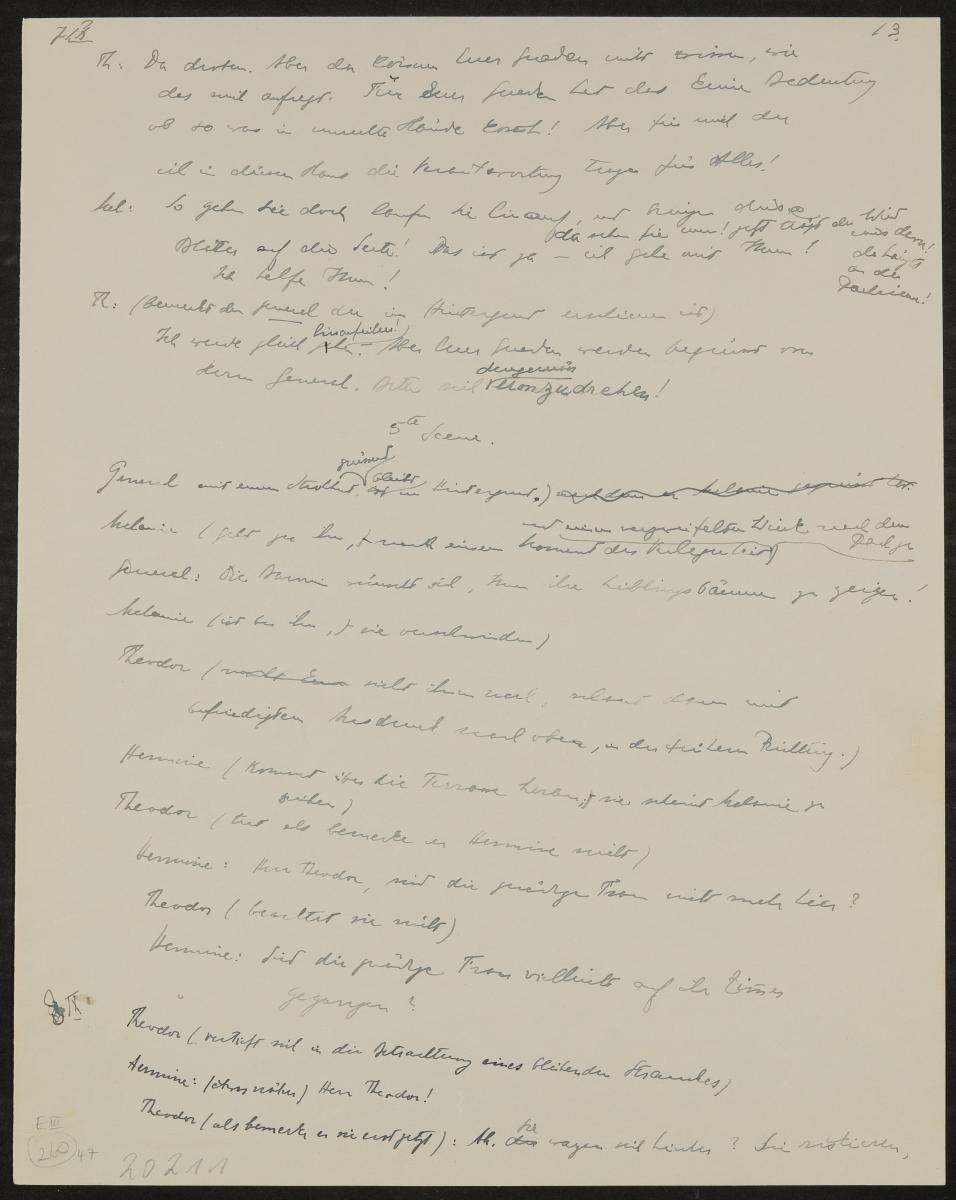 13.
Th: Da droben. Aber da können Euer Gnaden nicht wissen, wie
das mich aufregt. Für Euer Gnaden hat das keine Bedeutung
ob so was in unrechte Hände kommt! Aber für mich der
ich in diesem Haus die Verantwortung trage für Alles!
Mel: So gehen Sie doch laufen Sie hinauf, und bringen
da sehen Sie nur! jetzt trägt der Wind
Blätter auf die Seite! Das ist ja – ich gehe mit Ihnen!
Ich helfe Ihnen!
Th: (bemerkt den General der im Hintergrund erschienen ist)
hinaufeilen!)
Ich werde gleich Aber Euer Gnaden werden begrüsst vom
Herrn General. Bitte sich umzudrehen!
5te Scene.
grüssend
bleibt
General mit einem Strohhut, im Hintergrund.)
und einen verzweifelten Blick nach dem
Melanie (geht zu ihm, nach einem Moment der Verlegenheit)
General: Die Baronin wünscht sich, Ihnen ihre Lieblingsbäume zu zeigen!
Melanie (ist bei ihm, & sie verschwinden)
Theodor (sieht ihnen nach, schaut dann mit
befriedigtem Ausdruck nach oben, in der frühern Richtung.)
Hermine (kommt über die Terrasse herab, sie scheint Melanie zu
suchen)
Theodor (tut als bemerke er Hermine nicht)
Hermine: Herr Theodor, sind die gnädige Frau nicht mehr hier?
Theodor (beachtet sie nicht)
Hermine: Sind die gnädige Frau vielleicht auf ihr Zimmer
gegangen?
Theodor (vertieft sich in die Betrachtung eines blühenden Strauches)
Hermine: (etwas näher) Herr Theodor!
Theodor (als bemerke er sie erst jetzt): Ah. Sie wagen sich hierher? Sie riskieren,
E III
260
47
20211